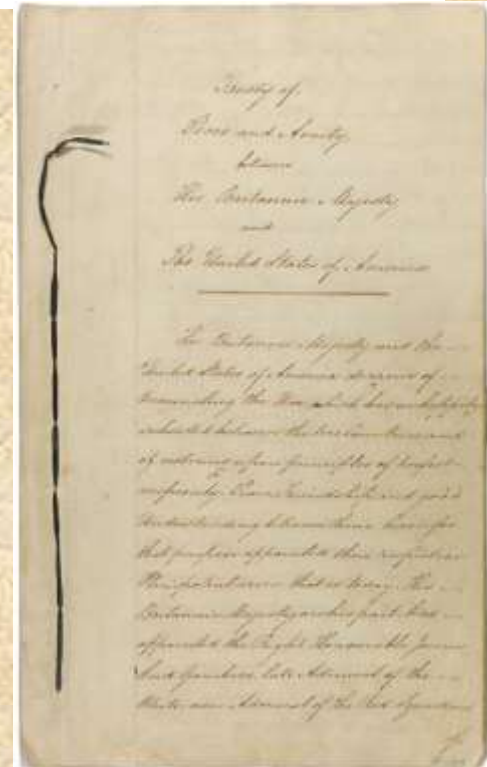 Treaty of
Peace and Amity
between
His Britannic Majesty
and
The United States of America
His Britannic Majesty and the
United States of America desirous of
terminating the War which has unhappily
subsisted between the two Countries and
of restoring upon principles of perfect
reciprocity Peace Friendship and good
Understanding between them have for
that purpose appointed their respective
Plenipotentiaries that is to say His
Britannic Majesty on his part has
appointed the Right Honourable James
Lord Gambier late Admiral of the
White now Admiral of the Red Squadron